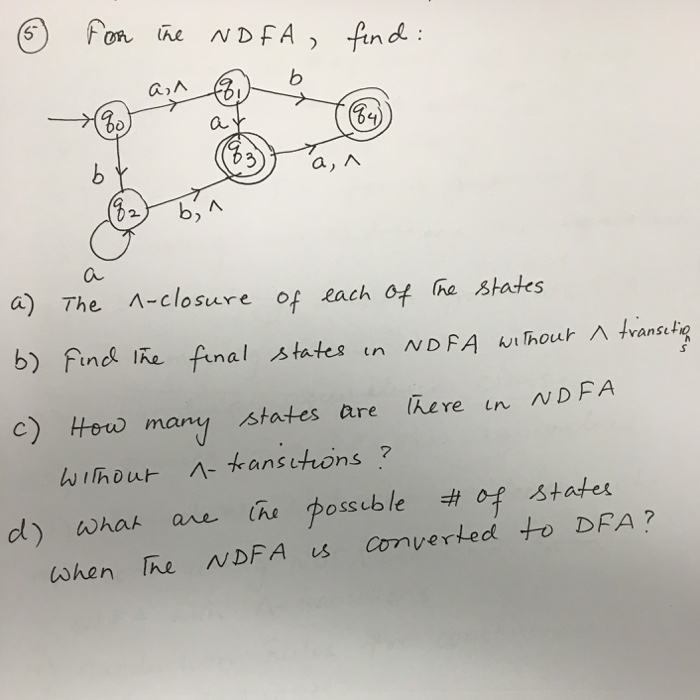 ⑤ For the NDFA, find:
a,^
b
q0
q1
q4
a
q3
a, ^
b
q2
b, ^
a
a) The ^-closure of each of the states
b) Find the final states in NDFA without ^ transitions
c) How many states are there in NDFA
without ^-transitions?
d) What are the possible # of states
when the NDFA is converted to DFA?